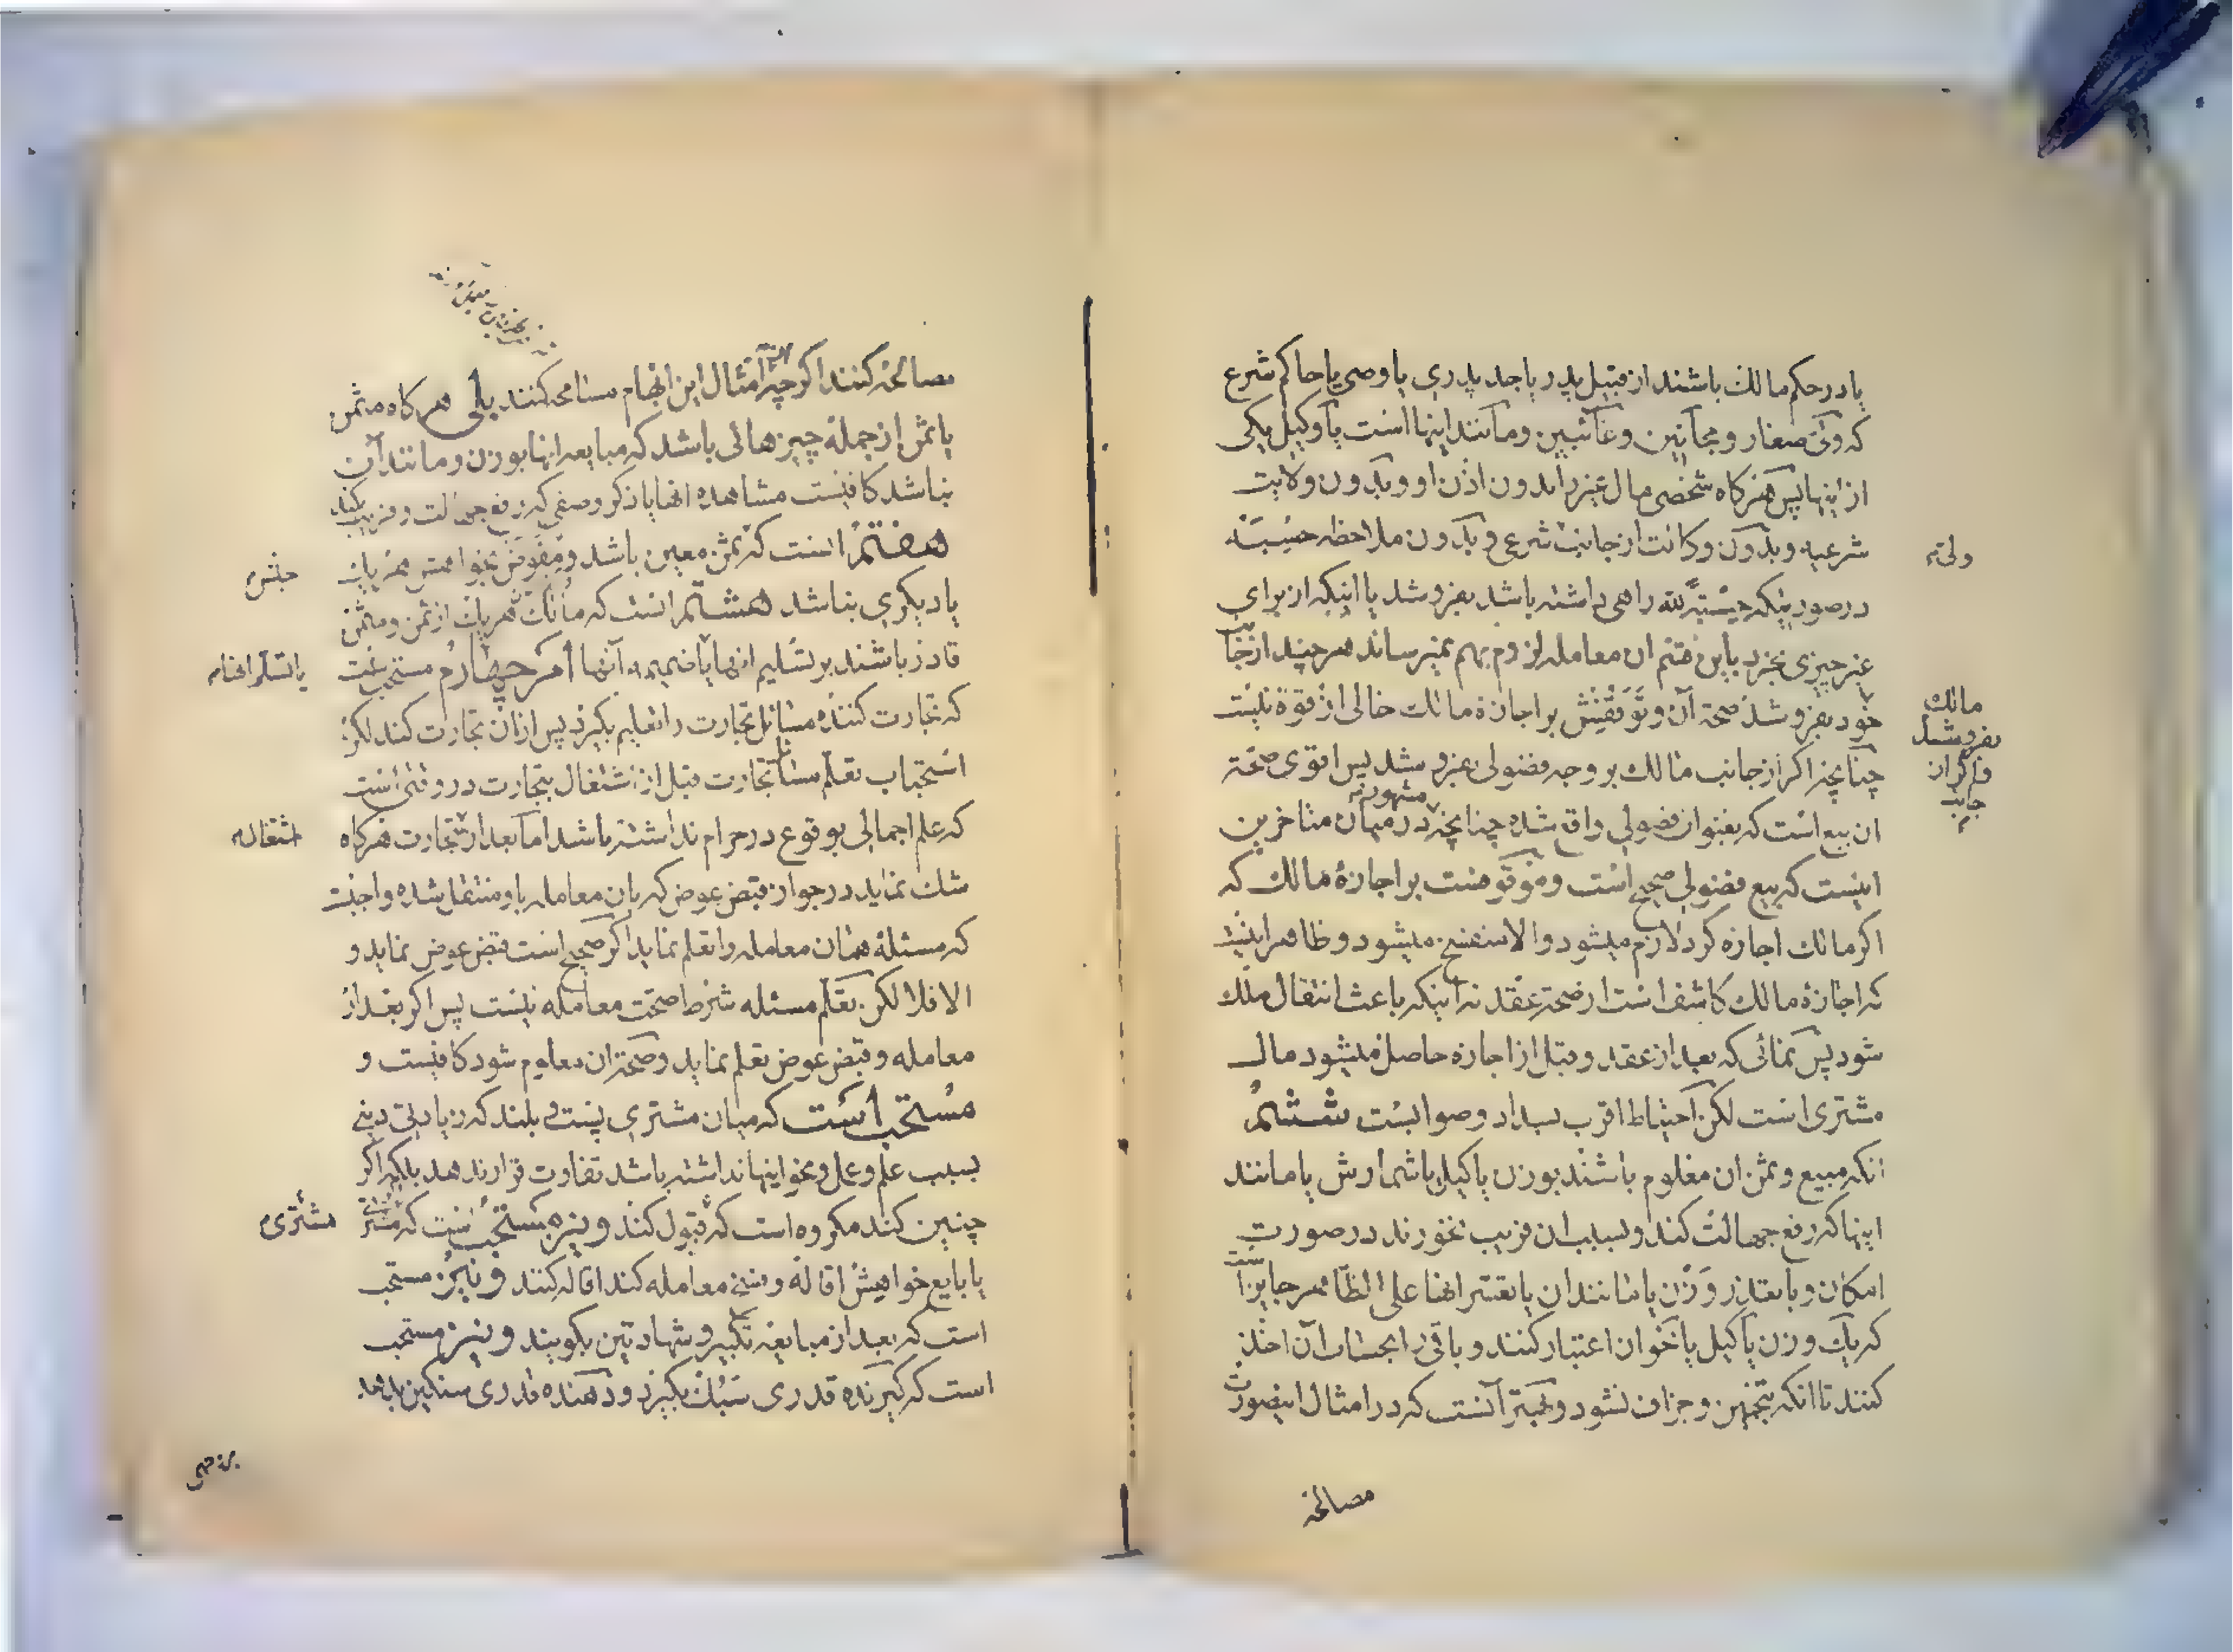 یا در حکم مالک باشند از قبیل پدر یا جد پدری یا وصی یا حاکم شرع
که ولی صغار و مجانین و غائبین و مانند اینها است یا وکیل یکی
از اینها پس هرگاه شخصی مال غیر را بدون اذن او و بدون ولایت
شرعیه و بدون وکالت از جانب شرع و بدون ملاحظه حسبة
در صورتیکه حسبة لله راهی داشته باشد بفروشد یا اینکه از برای
غیر چیزی بخرد باین قسم ان معامله لزوم بهم نمیرساند هر چند از جانب
خود بفروشد صحة آن و توقفش بر اجازة مالک خالی از قوة نیست
چنانچه اگر از جانب مالک بر وجه فضولی بفروشد پس اقوی صحة
ان بیع است که بعنوان فضولی واقع شده چنانچه مشهور در میان متاخرین
اینست که بیع فضولی صحیح است و موقوفست بر اجازهٔ مالک که
اگر مالک اجازه کرد لازم میشود والا منفسخ میشود و ظاهر اینست
که اجازهٔ مالک کاشف است از صحة عقد نه اینکه باعث انتقال ملک
شود پس نمائی که بعد از عقد و قبل از اجازه حاصل میشود مال
مشتری است لکن احتیاط اقرب بسداد و صوابست ششم
انکه مبیع و ثمن ان معلوم باشند بوزن یا کیل یا شمارش یا مانند
اینها که رفع جهالت کند و بسبب ان فریب نخورند در صورت
امکان و با تعذر وزن یا مانند ان یا تعسر انها علی الظاهر جایز است
که یک وزن یا کیل یا نحو ان اعتبار کنند و باقی را بحساب آن اخذ
کنند تا انکه تخمین و جزاف نشود و بهتر آنست که در امثال اینصورت
ولیه
مالک
بفروشد
و اگر از
جانب
مصالحه
مصالحه کنند اگر چه در امثال این ابهام مسامحه کنند بلی هر گاه مثمن
یا ثمن از جمله چیزهائی باشد که مبایعه انها بوزن و مانند آن
نباشد کافیست مشاهده انها یا ذکر وصفی که رفع جهالت و فریب کند
هفتم انست که ثمن معین باشد و مفوض بخواهش هر یک
یا دیگری نباشد هشتم انست که مالک هر یک از ثمن و مثمن
قادر باشند بر تسلیم انها یا ضمیمه آنها امر چهارم مستحب است
که تجارت کننده مسائل تجارت را تعلیم بگیرد پس از ان تجارت کند لکن
استحباب تعلم مسائل تجارت قبل از اشتغال بتجارت در وقتی است
که علم اجمالی بوقوع در حرام نداشته باشد اما بعد از تجارت هر گاه
شک نماید در جواز قبض عوض که بان معامله باو منتقل شده واجبست
که مسئله همان معامله را تعلم نماید اگر صحیح است قبض عوض نماید و
الا فلا لکن تعلم مسئله شرط صحت معامله نیست پس اگر بعد از
معامله و قبض عوض تعلم نماید و صحة ان معلوم شود کافیست و
مستحب است که میان مشتری پست و بلند که زیادتی دینی
بسبب علم و عمل و نحو اینها نداشته باشد تفاوت قرار ندهد بلکه اگر
چنین کند مکروه است که قبول کند و نیز مستحب است که مشتری
یا بایع خواهش اقاله و فسخ معامله کند اقاله کنند و نیز مستحب
است که بعد از مبایعه تکبیر و شهادتین بگویند و نیز مستحب
است که گیرنده قدری سبک بگیرد و دهنده قدری سنگین بدهد
جنس
یا تسلیم انها
اشتغاله
مشتری